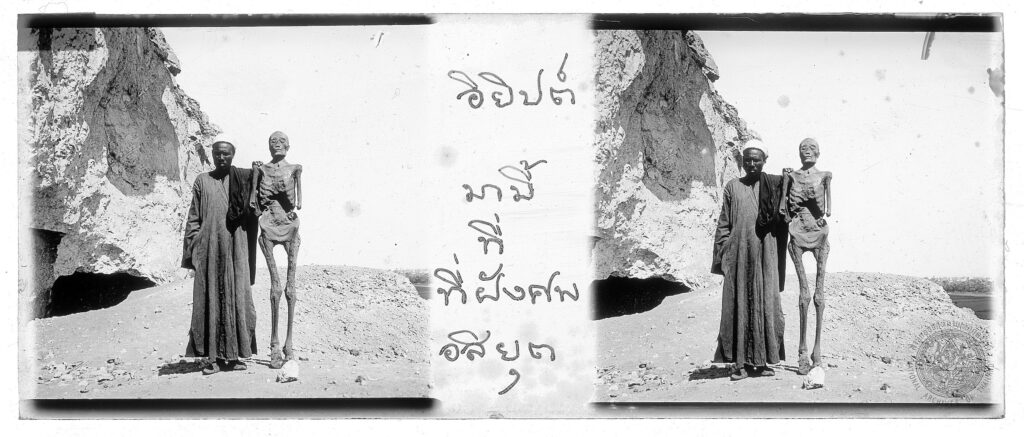 อิยิปต์
มามี้
ที่
ที่ฝังศพ
อสิยุต